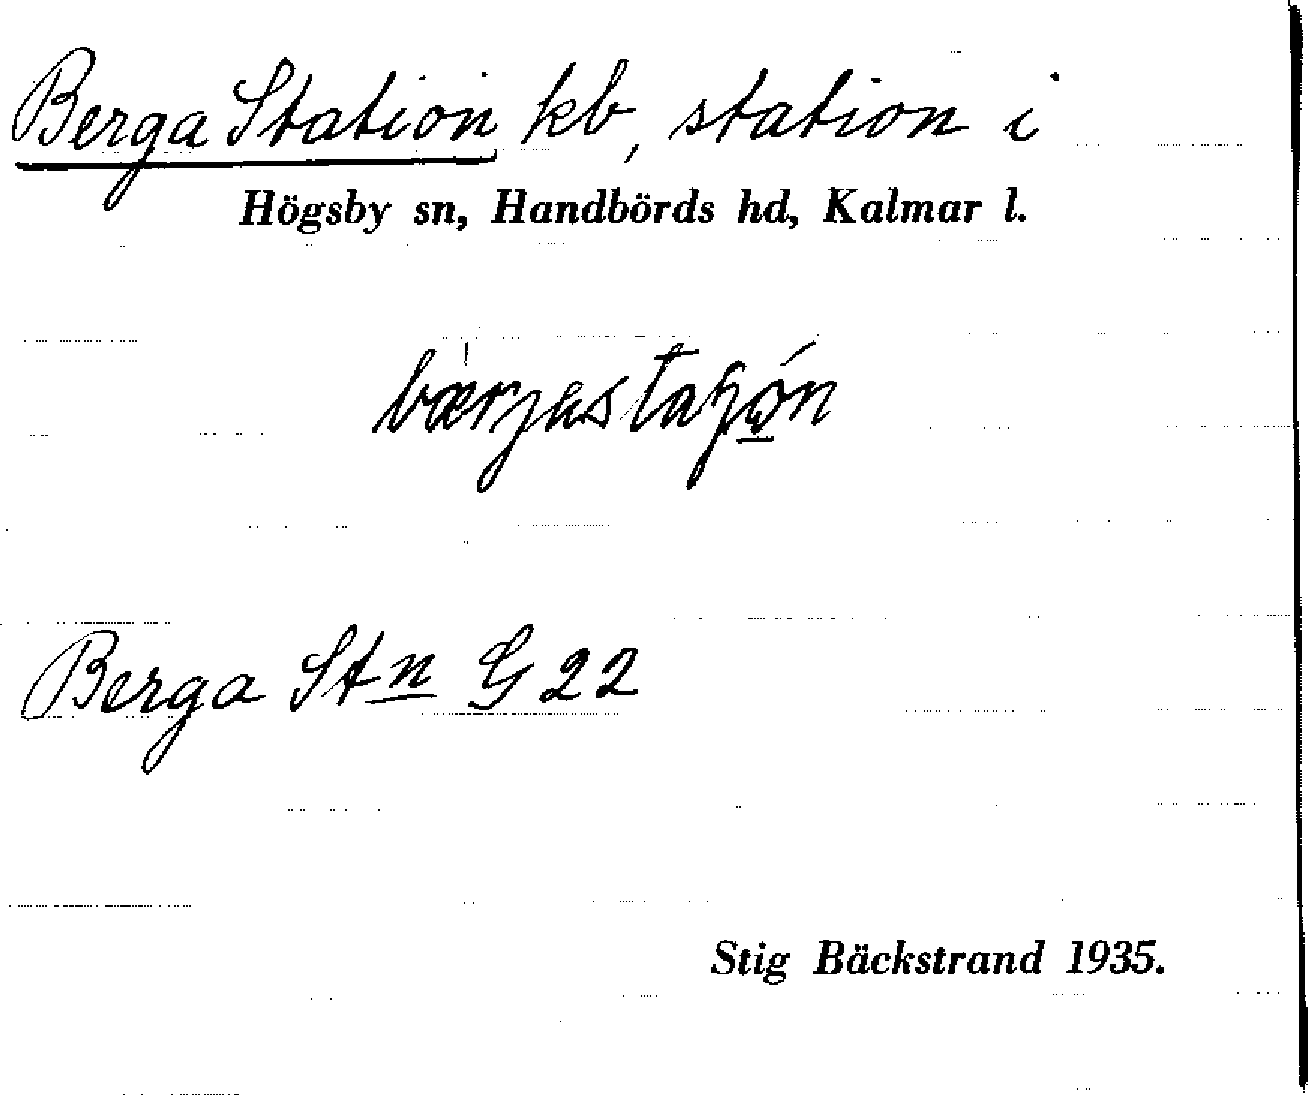 Berga Station kb, station i
Högsby sn, Handbörds hd, Kalmar l.
Berga Stn G 22
Stig Bäckstrand 1935.